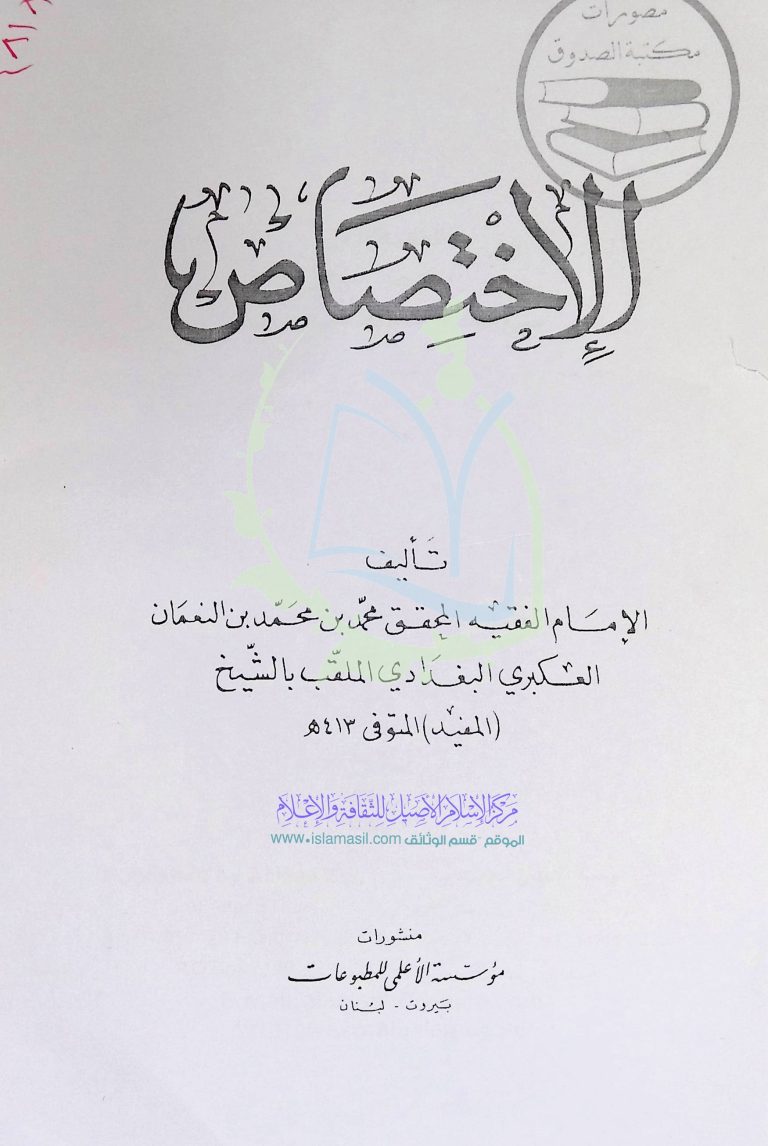 مصورات
مكتبة الصدوق
الإختصاص
تأليف
الإمام الفقيه المحقق محمد بن محمد بن النعمان
العكبري البغدادي الملقب بالشيخ
(المفيد) المتوفى ٤١٣هـ
مركز الإسلام الأصيل للثقافة والإعلام
الموقع - قسم الوثائق www.islamasil.com
منشورات
مؤسسة الأعلمي للمطبوعات
بيروت - لبنان